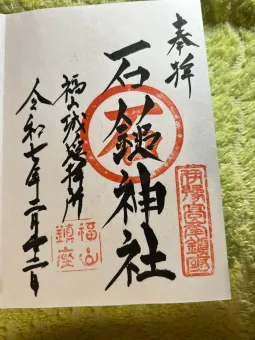 奉拝
石鎚神社
福山城遥拝所
令和七年二月十二日
伊豫高峯鎮座
福山
鎮座